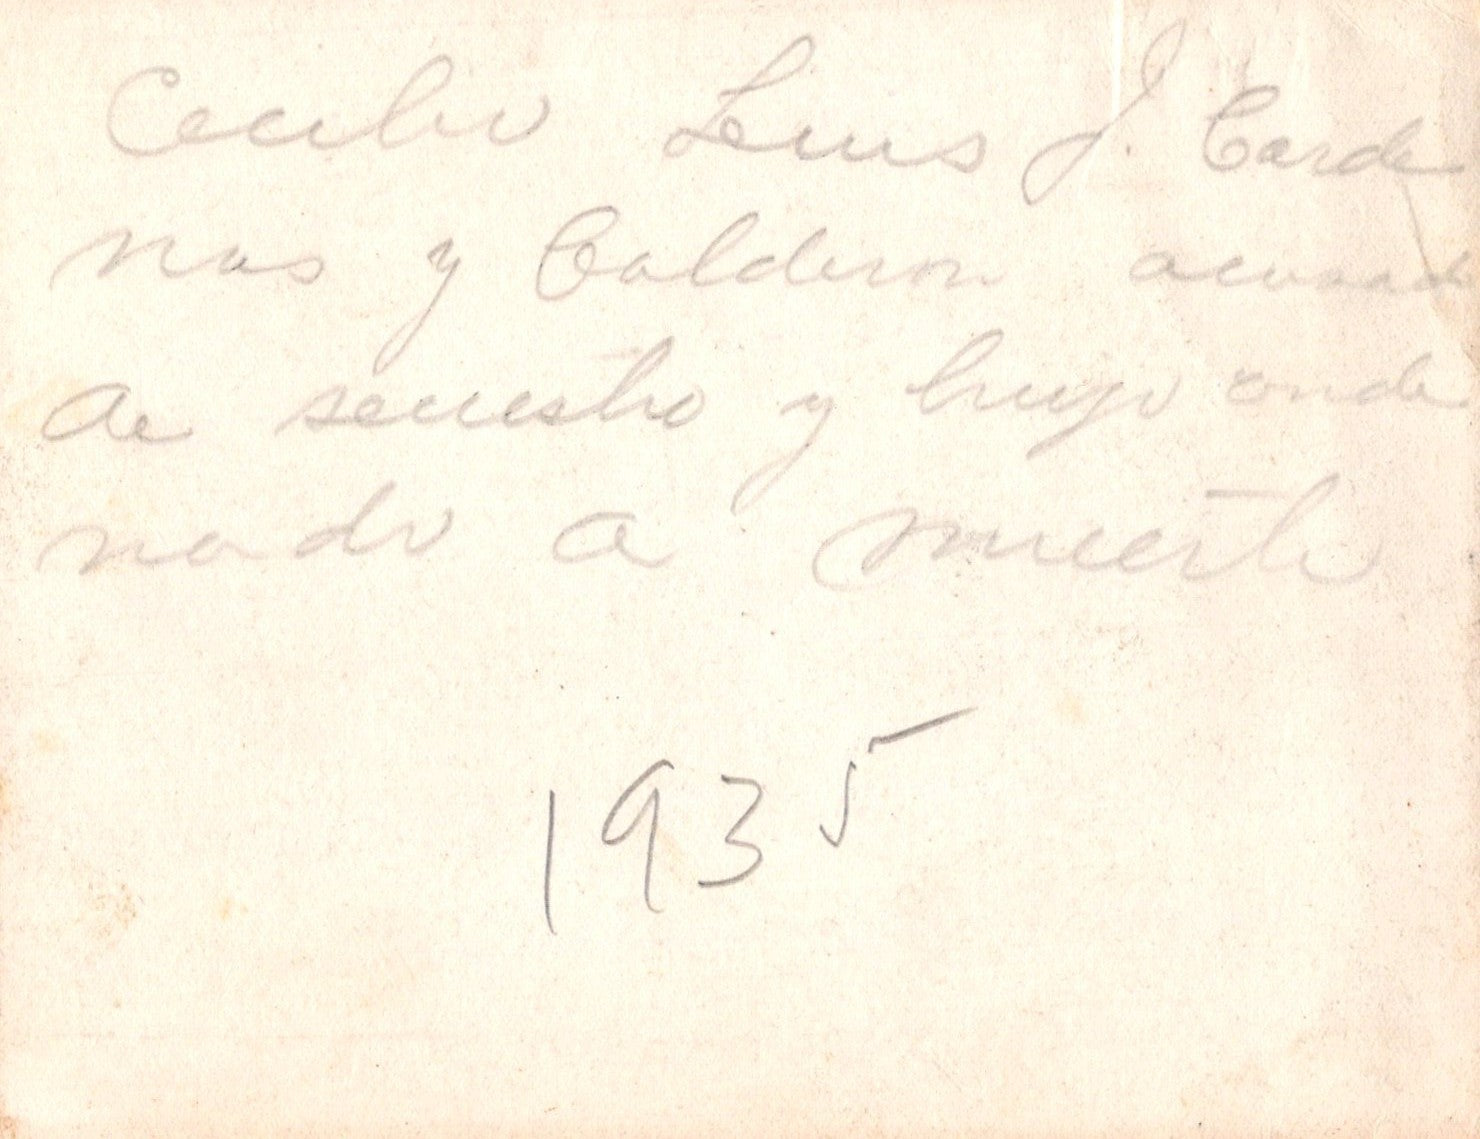 Cecilio Leius J. Carde
nas y Calderon acusado
de secuestro y luego conde
nado a muerte
1935